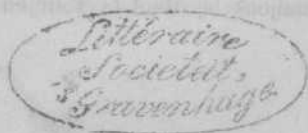 Littéraire
Societat,
's Gravenhage